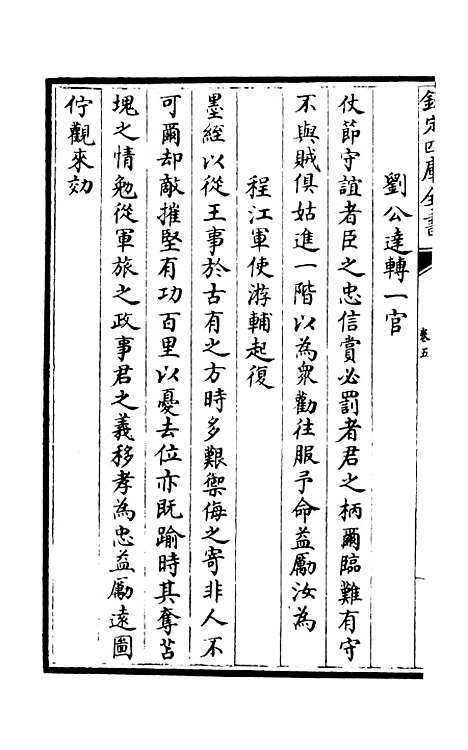 欽定四庫全書
卷五
劉公達轉一官
仗節守誼者臣之忠信賞必罰者君之柄爾臨難有守
不與賊俱姑進一階以為衆勸往服予命益勵汝為
程江軍使游輔起復
墨絰以從王事於古有之方時多艱禦侮之寄非人不
可爾却敵摧堅有功百里以憂去位亦既踰時其奪苫
塊之情勉從軍旅之政事君之義移孝為忠益勵遠圖
佇觀來効